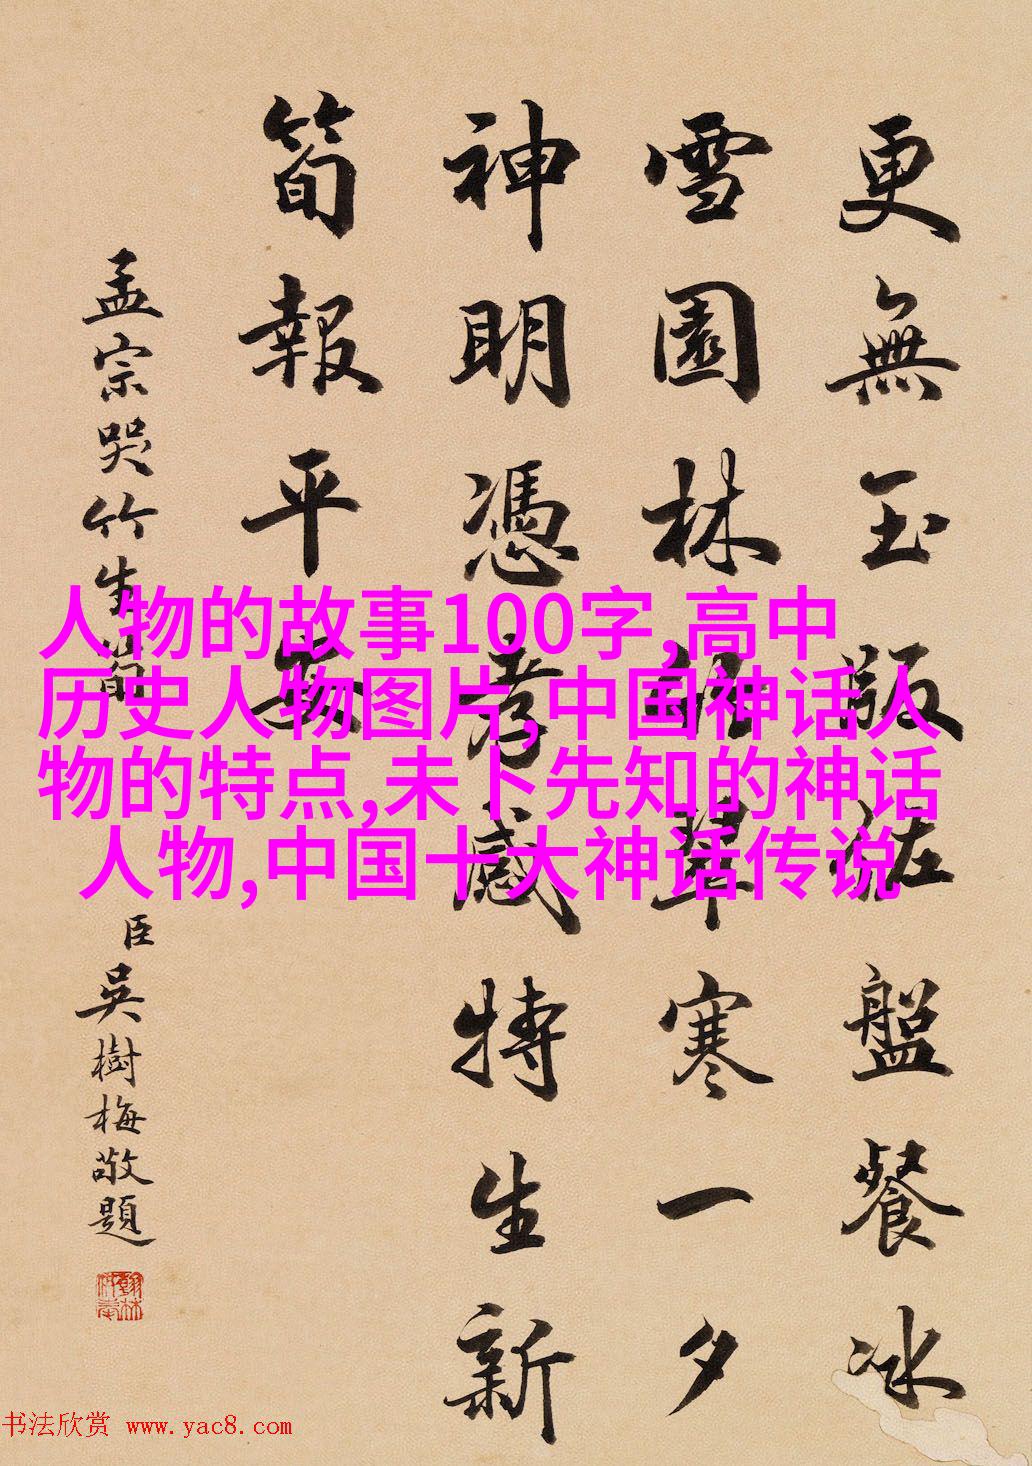 更無玉版盤餐冰
雪園林翠寒一夕
神明憑孝感特生新
筍報平安
孟宗哭竹生筍
臣吳樹梅敬題
人物的故事100字,高中
历史人物图片,中国神话人
物的特点,未卜先知的神话
人物,中国十大神话传说
书法欣赏 www.yac8.com